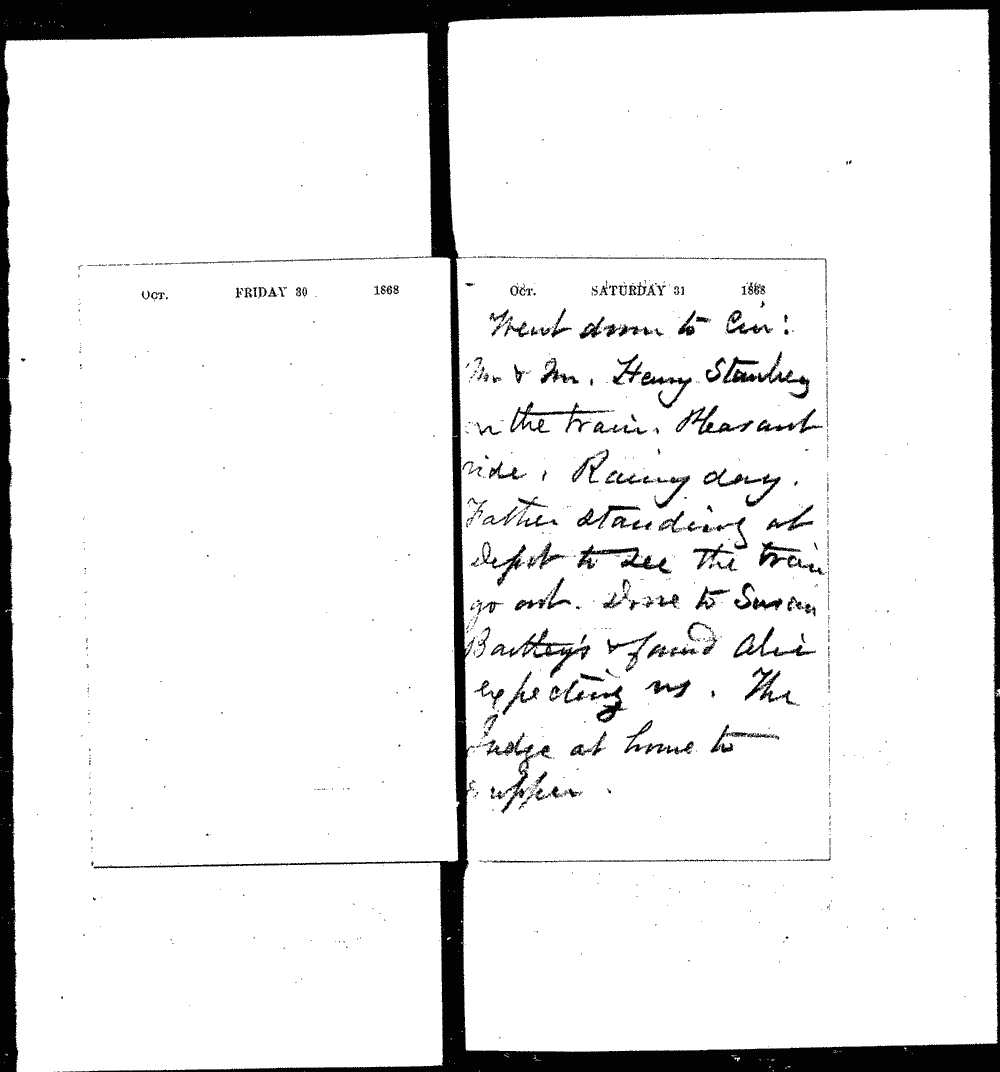 Oct. FRIDAY 30 1868
Oct. SATURDAY 31 1868
Went down to Cin:
Mr & Mrs. Henry Stanbery
on the train. Pleasant
ride. Rainy day.
Father standing at
depot to see the train
go out. Drove to Susan
& found
expecting us. The
Judge at home to
supper.